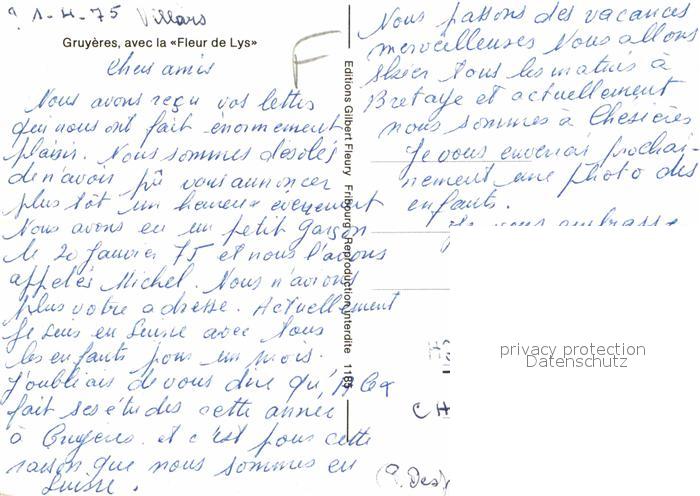 1-4-75 Villars
Gruyères, avec la «Fleur de Lys»
Chers amis
Nous avons reçu vos lettres
qui nous ont fait énormement
plaisir. Nous sommes désolés
de n'avoir pû vous annoncer
plus tôt un heureux évenement
Nous avons eu un petit garçon
le 20 Janvier 75 et nous l'avons
appelés Michel. Nous n'avions
plus votre adresse. Actuellement
Je suis en Suisse avec tous
les enfants pour un mois.
J'oubliais de vous dire qu'Alex
fait ses études cette année
à Gruyères et c'est pour cette
raison que nous sommes en
Suisse.
Editions Gilbert Fleury Fribourg Reproduction interdite 1185
Nous passons des vacances
merveilleuses Nous allons
skier tous les matins à
Bretaye et actuellement
nous sommes à Chesières
Je vous enverrai prochai-
nement une photo des
enfants.
Je vous embrasse
privacy protection
Datenschutz
CH